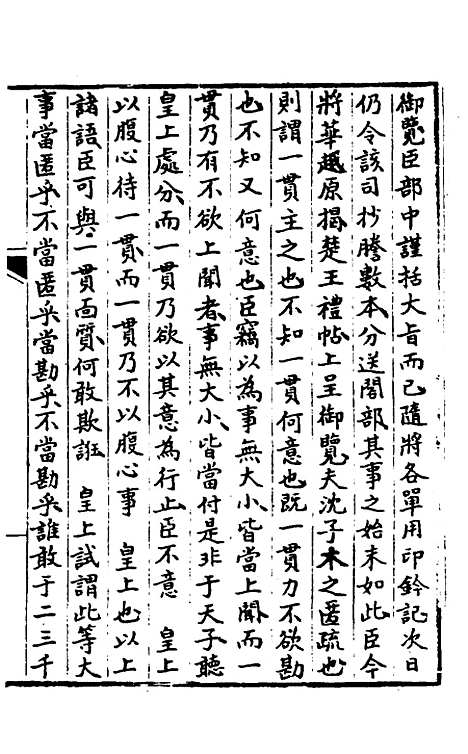 御覽臣部中謹括大旨而已隨將各單用印鈐記次日
仍令該司抄謄數本分送閣部其事之始末如此臣今
將華趆原揭楚王禮帖上呈御覽夫沈子木之匿疏也
則謂一貫主之也不知一貫何意也既一貫力不欲勘
也不知又何意也臣竊以為事無大小皆當上聞而一
貫乃有不欲上聞者事無大小皆當付是非于天子聽
皇上處分而一貫乃欲以其意為行止臣不意 皇上
以腹心待一貫而一貫乃不以腹心事 皇上也以上
諸語臣可與一貫面質何敢欺誑 皇上試謂此等大
事當匿乎不當匿乎當勘乎不當勘乎誰敢于二三千